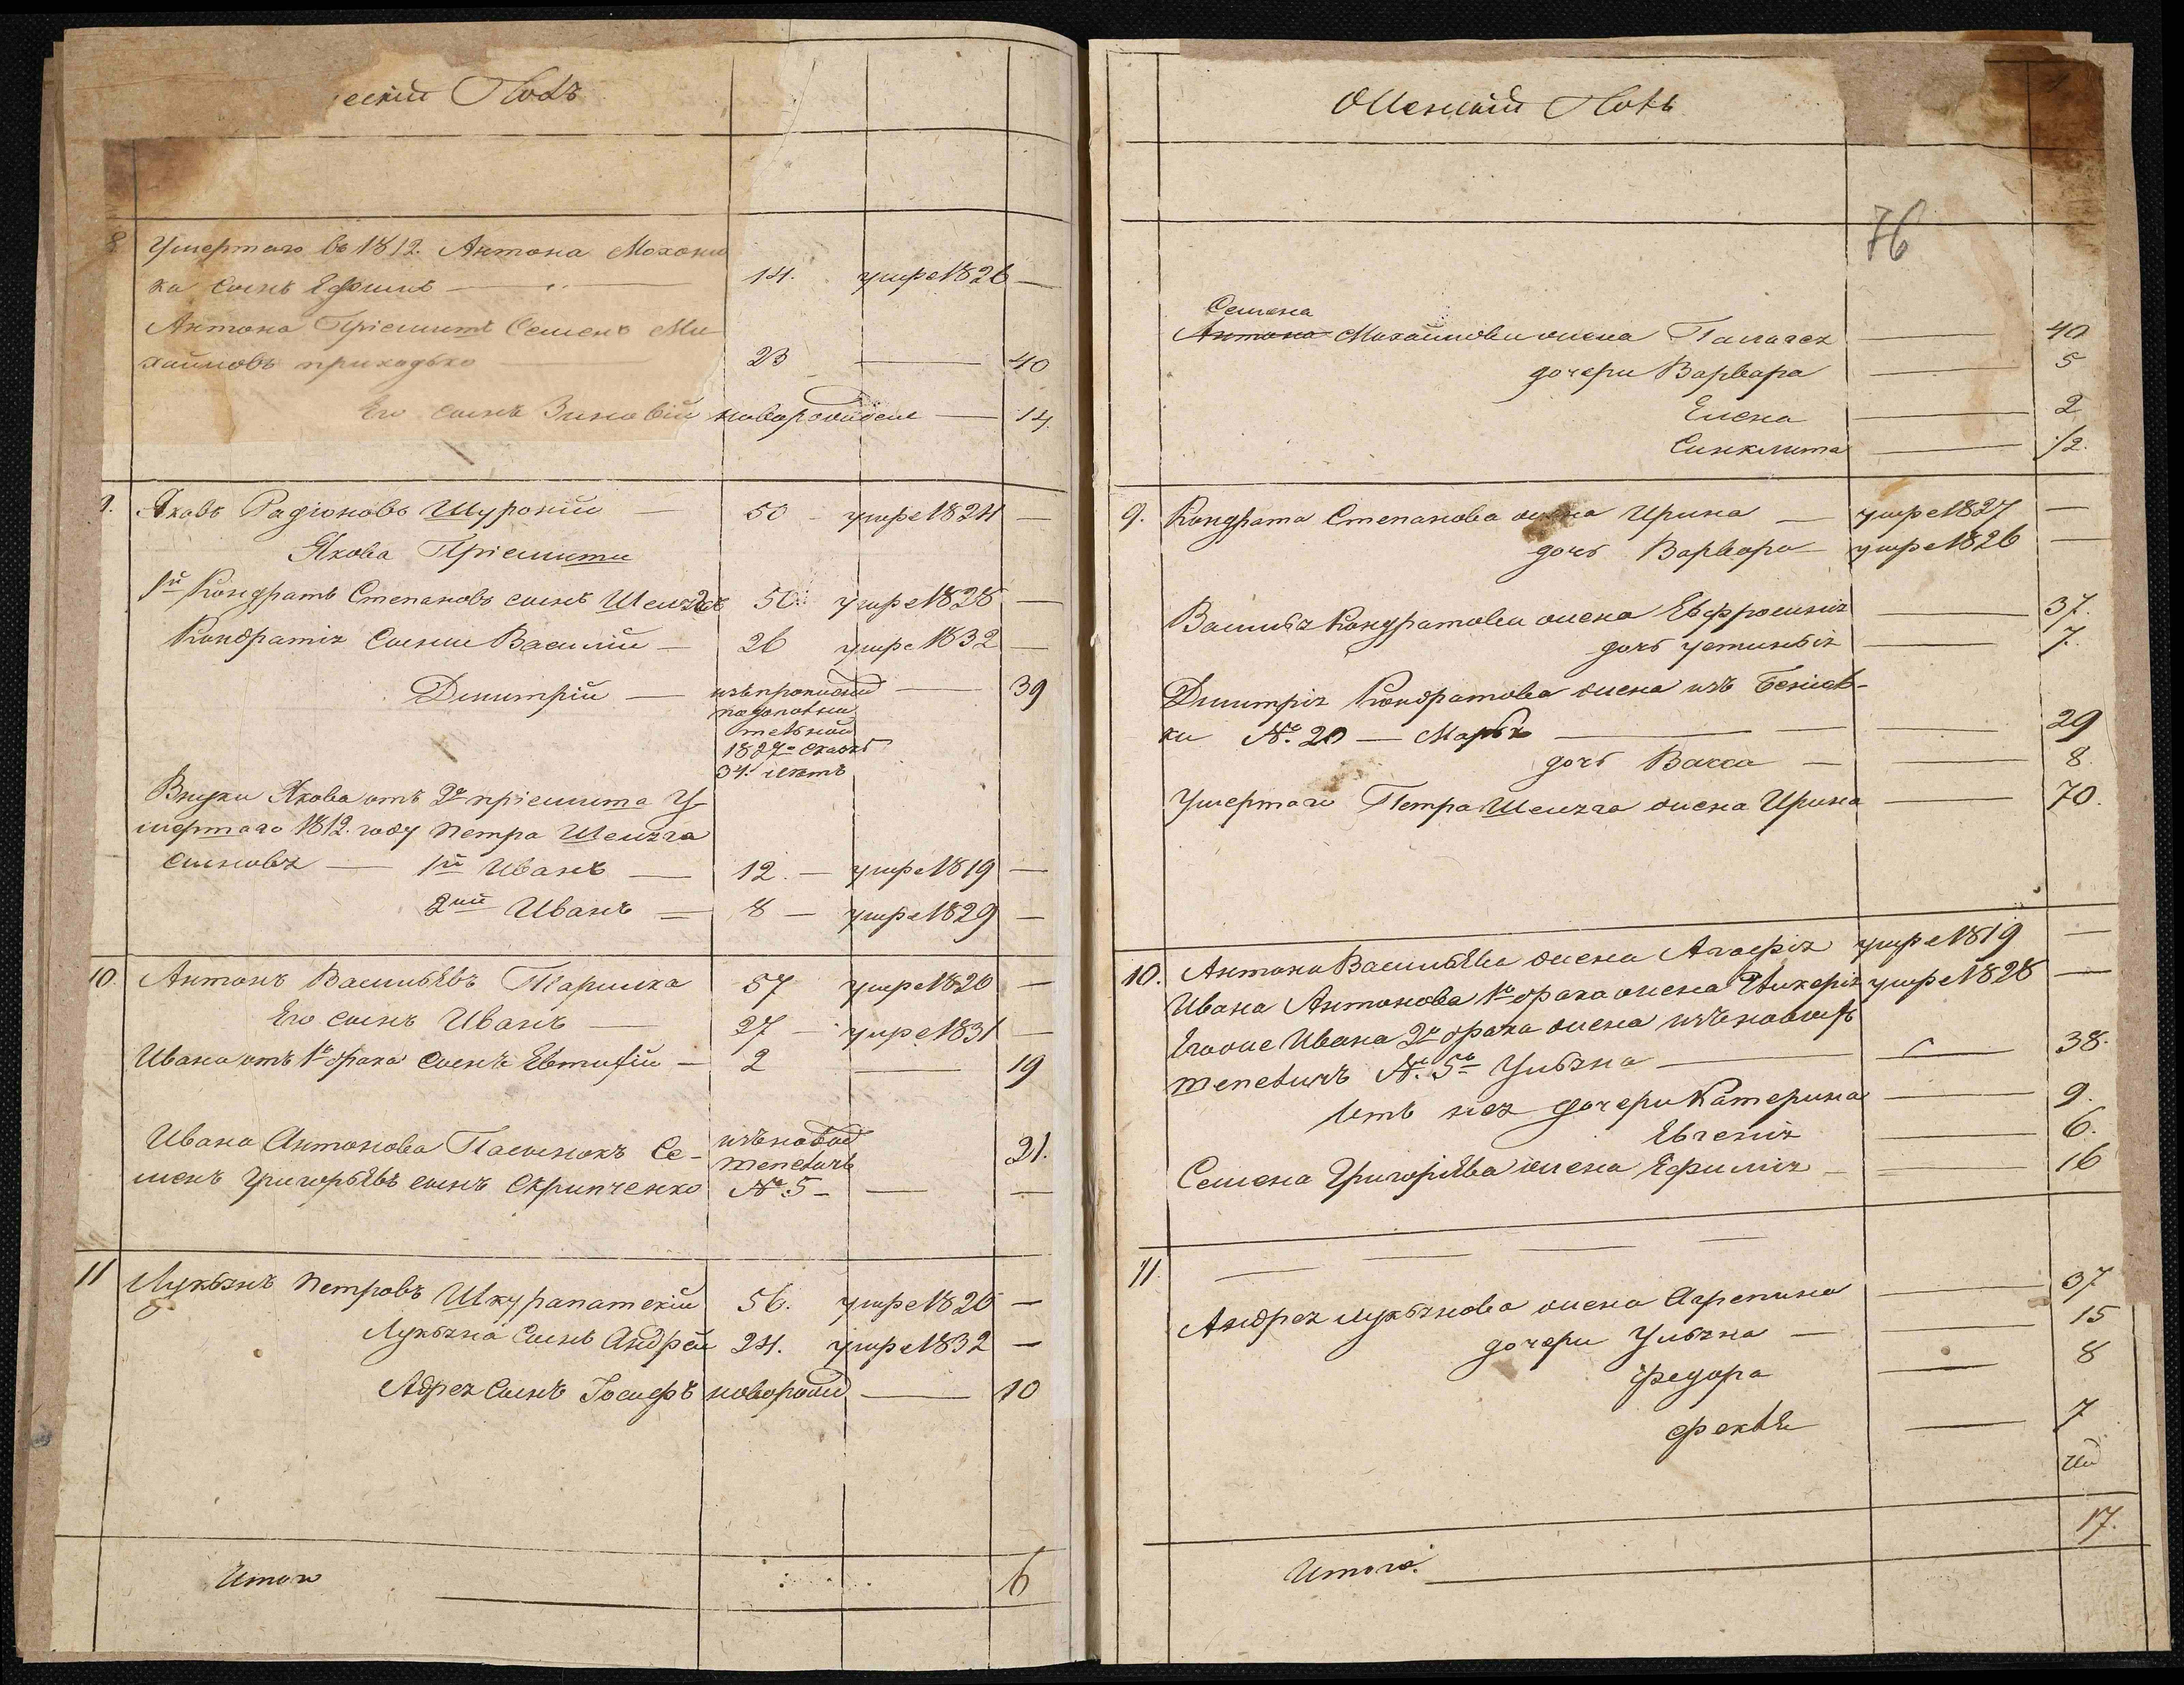 ескій Полъ
8 Умертаго въ 1812. Антона
ка сынъ Ефимъ 14. умре 1826 —
Антона Пріемитъ Семенъ Ми
хайловъ приходько 23 — 40
Его сынъ Зиновій новорожден — 14
9. Яковъ Радіоновъ Щуроній — 50 — умре 1824 —
Якова Пріемити
1й Кондратъ Степановъ сынъ 50. умре 1828 —
Кондратія Сынъ Василій — 26 умре 1832 —
Димитрій — — 39
1827 Сказкѣ
34. летъ
Внуки Якова отъ 2о пріемита У-
мертаго 1812. году Петра Шемяга
сыновя — 1й Иванъ — 12. — умре 1819 —
2ий Иванъ — 8 — умре 1829 —
10. Антонъ Васильевъ 57 умре 1820 —
Его сынъ Иванъ — 27 — умре 1831 —
Ивана отъ 1о брака сынъ Евтифій — 2 — 19
Ивана Антонова Пасынокъ Се- изъ новой 21.
менъ Григорьевъ сынъ Скрипченко № 5 — — —
11 Лукьянъ Петровъ Шкурапатскій 56. умре 1820 —
Лукьяна Сынъ Андрей 24. умре 1832 —
Адрея Сынъ Іосифъ новорожд — 10
Итого 6
Женскій Полъ
76
Семена
Антона Михайлова жена Палагея — 40
дочери Варвара — 5
Елена — 2
Синклита — 1/2.
9. Кондрата Степанова жена Ирина — умре 1827 —
дочь Варвара — умре 1826 —
Василья Кондратова жена Евфросинія — 37.
дочь устинья — 7.
Димитрія Кондратова жена изъ
ки №. 20 — Марья — 29
дочь Васса — — 8.
Умертаго Петра Шемяга жена Ирина — 70.
10. Антона Васильева жена Агафія умре 1819 —
Ивана Антонова 1о брака жена умре 1828 —
Егоже Ивана 2о брака жена изъ
№. 5о Ульяна — — 38.
Отъ нея дочери Катерина — 9.
Евгенія — 6.
Семена Григорьева жена Ефимія — — 16
11. — — — —
Андрея лукьянова жена Агрепина — 37
дочери Ульяна — — 15
Федора — 8
фекла — 7
17.
Итого. —